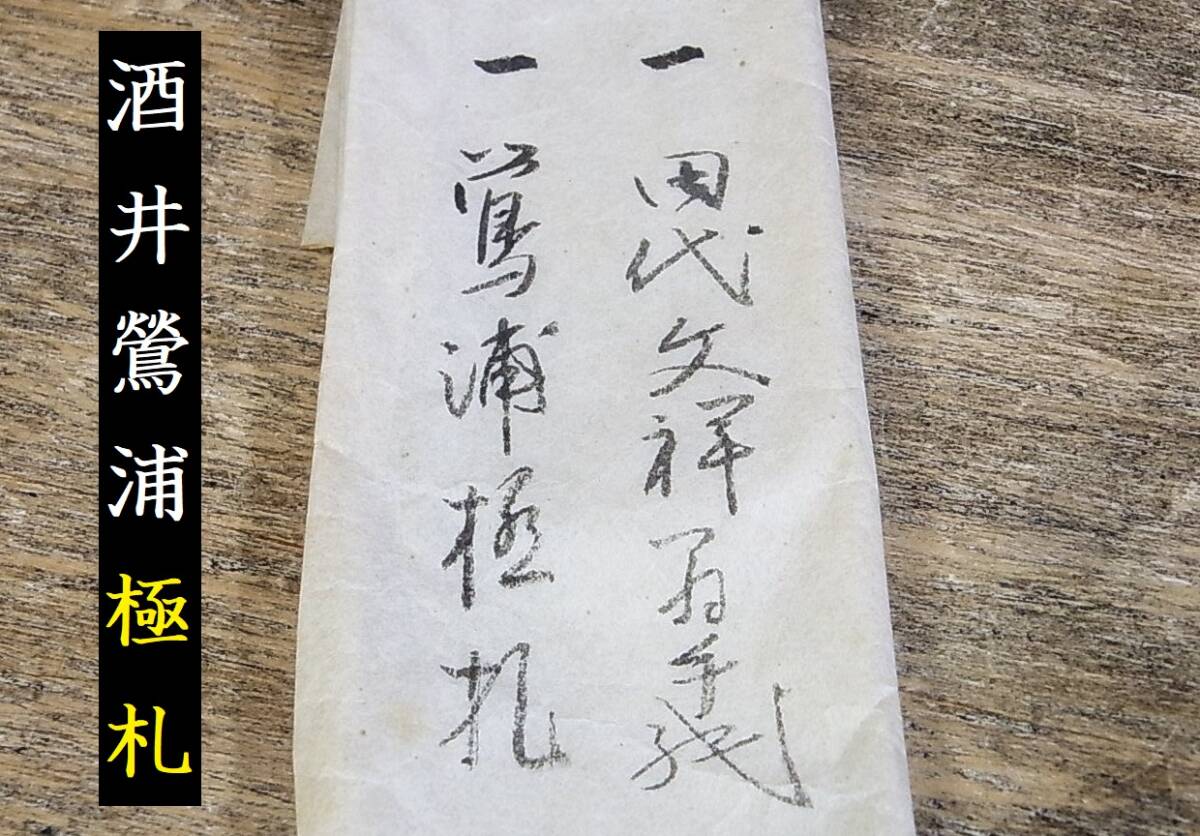 一 田代文祥
一 鶯浦極札
酒井鶯浦極札